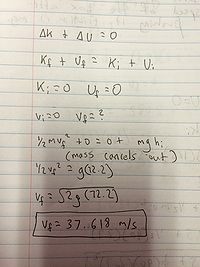 ΔK + ΔU = 0
Kf + Uf = Ki + Ui
Ki = 0 Uf = 0
vi = 0 vf = ?
1/2 mvf² + 0 = 0 + mghi
(mass cancels out)
1/2 vf² = g(72.2)
vf = √2g(72.2)
vf = 37.618 m/s